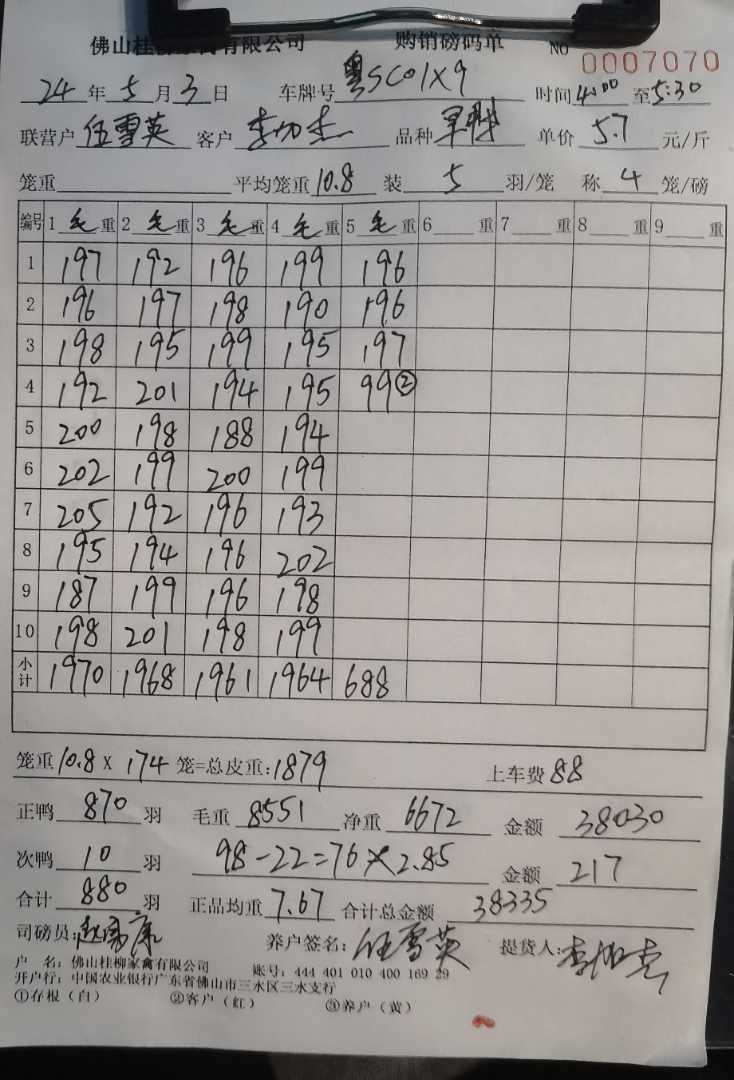 佛山桂柳家禽有限公司 购销磅码单 NO 0007070
24 年 5 月 3 日 车牌号 粤SC01X9 时间 4:00 至 5:30
联营户 伍雪英 客户 品种 单价 5.7 元/斤
笼重 平均笼重 10.8 装 5 羽/笼 称 4 笼/磅
编号 1 毛 重 2 毛 重 3 毛 重 4 毛 重 5 毛 重 6 重 7 重 8 重 9 重
1 197 192 196 199 196
2 196 197 198 190 196
3 198 195 199 195 197
4 192 201 194 195 99②
5 200 198 188 194
6 202 199 200 199
7 205 192 196 193
8 195 194 196 202
9 187 199 196 198
10 198 201 198 199
小计 1970 1968 1961 1964 688
笼重 10.8 X 174 笼=总皮重: 1879 上车费 88
正鸭 870 羽 毛重 8551 净重 6672 金额 38030
次鸭 10 羽 98-22=76×2.85 金额 217
合计 880 羽 正品均重 7.67 合计总金额 38335
司磅员: 养户签名: 伍雪英 提货人:
户 名: 佛山桂柳家禽有限公司 账号: 444 401 010 400 169 29
开户行: 中国农业银行广东省佛山市三水区三水支行
①存根（白） ②客户（红） ③养户（黄）